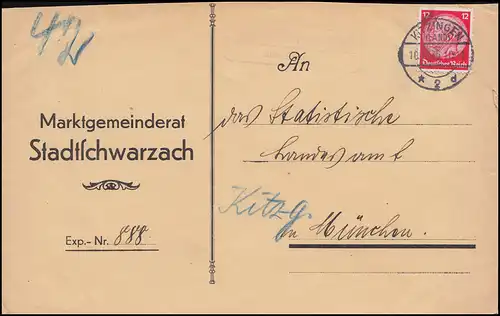 12 12
Deutsches Reich
KITZINGEN
* 2 d
An
Marktgemeinderat
Stadtſchwarzach
das Statistische
Landesamt
Kitz-g.
in München.
Exp.- Nr. 888